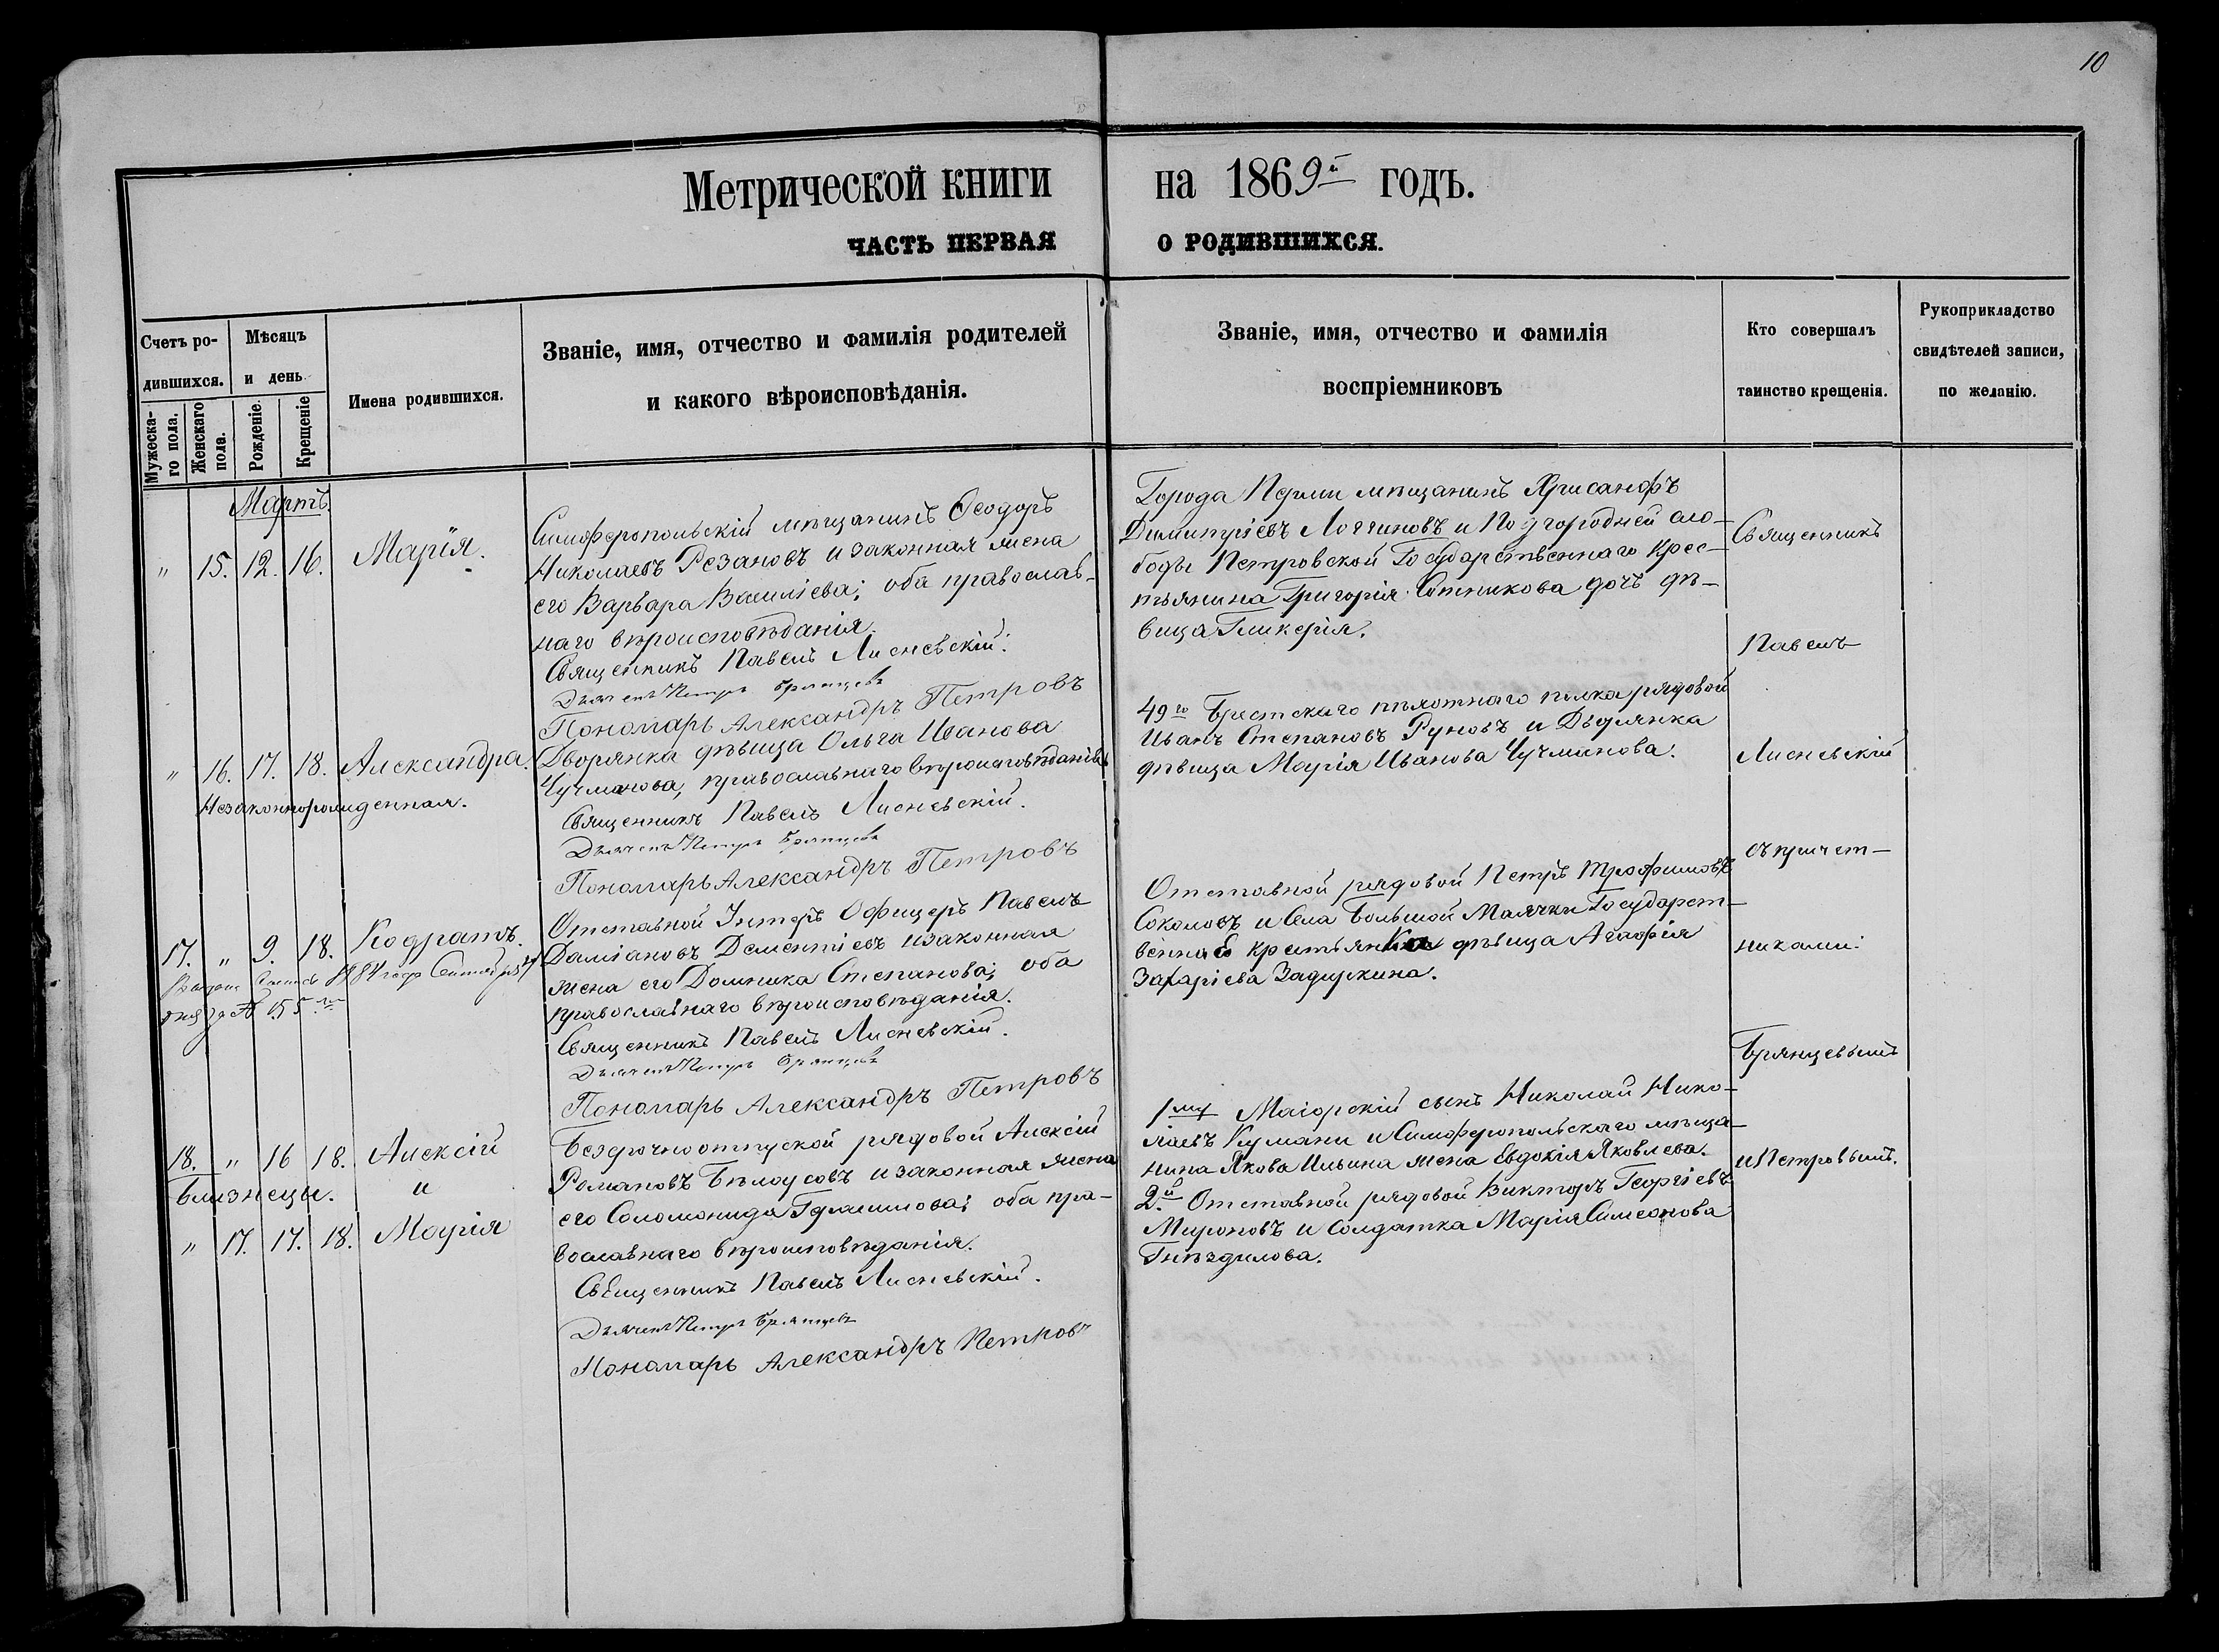 10
Метрической книги на 1869й годъ.
ЧАСТЬ ПЕРВАЯ О РОДИВШИХСЯ.
Счетъ родившихся.
Мужескаго пола.
Женскаго пола.
Мѣсяцъ и день
Рожденіе.
Крещеніе
Имена родившихся.
Званіе, имя, отчество и фамилія родителей
и какого вѣроисповѣданія.
Званіе, имя, отчество и фамилія
воспріемниковъ
Кто совершалъ
таинство крещенія.
Рукоприкладство
свидѣтелей записи,
по желанію.
Мартъ.
" 15. 12. 16. Марія.
Симферопольскій мѣщанинъ Ѳеодоръ
Николаевъ Резановъ и законная жена
его Варвара Василіева; оба православ-
наго вѣроисповѣданія.
Священникъ Павелъ Лисневскій.
Дьячекъ Петръ Брянцевъ
Пономарь Александръ Петровъ
Города Перми мѣщанинъ Хрисанфъ
Димитріевъ Логгиновъ и Подгородней сло-
боды Петровской Государственнаго крес-
тьянина Григорія Сотникова дочь дѣ-
вица Гликерія.
" 16. 17. 18. Александра.
Незаконнорожденная.
Дворянка дѣвица Ольга Иванова
Чучманова, православнаго вѣроисповѣданія
Священникъ Павелъ Лисневскій.
Дьячекъ Петръ Брянцевъ
Пономарь Александръ Петровъ
49го Брестскаго пѣхотнаго полка рядовой
Иванъ Степановъ Руновъ и Дворянка
дѣвица Марія Иванова Чучманова.
17. " 9. 18. Кодратъ.
1884 года Сентября
дня за № 155
Отставной Унтеръ Офицеръ Павелъ
Даміановъ Дементіевъ и законная
жена его Домника Степанова; оба
православнаго вѣроисповѣданія.
Священникъ Павелъ Лисневскій.
Дьячекъ Петръ Брянцевъ
Пономарь Александръ Петровъ
Отставной рядовой Петръ Трофимовъ
Соколовъ и Села Большой Маячки Государст-
венная крестьянка дѣвица Агафія
Захаріева Задиркина.
18. " 16 18. Алексій
Близнецы. и
" 17. 17. 18. Марія
Безсрочноотпускной рядовой Алексій
Романовъ Бѣлоусовъ и законная жена
его Соломонида Герасимова; оба пра-
вославнаго вѣроисповѣданія.
Священникъ Павелъ Лисневскій.
Дьячекъ Петръ Брянцевъ
Пономарь Александръ Петровъ
1му Маіорскій сынъ Николай Нико-
лаевъ Кумани и Симферопольскаго мѣща-
нина Якова Ильина жена Евдокія Яковлева.
2й Отставной рядовой Викторъ Георгіевъ
Мироновъ и Солдатка Марія Симеонова
Гнѣздилова.
Священникъ
Павелъ
Лисневскій
съ причет-
никами:
Брянцевымъ
и Петровымъ.